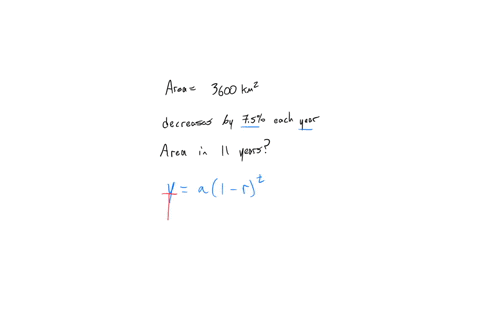 Area = 3600 km²
decreases by 7.5% each year
Area in 11 years?
y = a(1 - r)^t